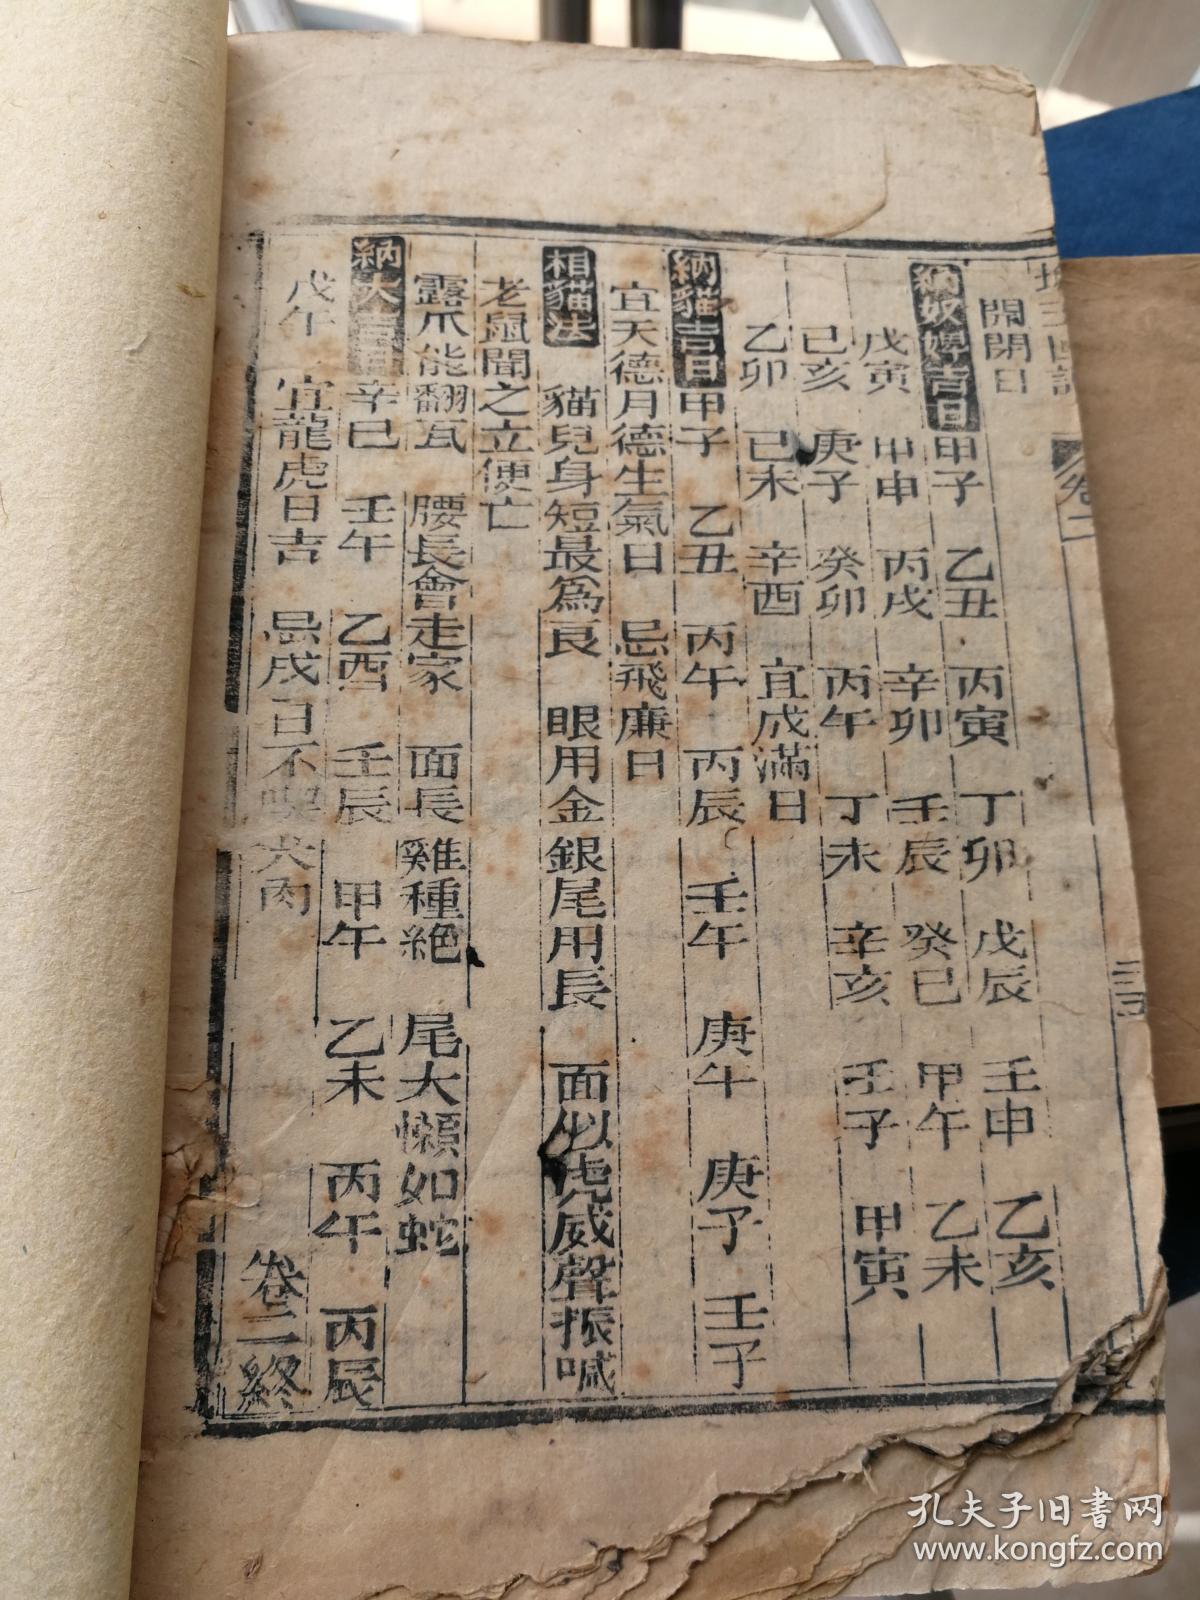 卷二
三五
開閉日
納奴婢吉日 甲子 乙丑 丙寅 丁卯 戊辰 壬申 乙亥
戊寅 甲申 丙戌 辛卯 壬辰 癸巳 甲午 乙未
己亥 庚子 癸卯 丙午 丁未 辛亥 壬子 甲寅
乙卯 己未 辛酉 宜成滿日
納貓吉日 甲子 乙丑 丙午 丙辰 壬午 庚午 庚子 壬子
宜天德月德生氣日 忌飛廉日
相貓法 貓兒身短最為良 眼用金銀尾用長 面似虎威聲振喊
老鼠聞之立便亡
露爪能翻瓦 腰長會走家 面長雞種絕 尾大懶如蛇
納犬吉日 辛巳 壬午 乙酉 壬辰 甲午 乙未 丙午 丙辰
戊午 宜龍虎日吉 忌戌日不喫犬肉 卷二終
孔夫子旧书网
www.kongfz.com